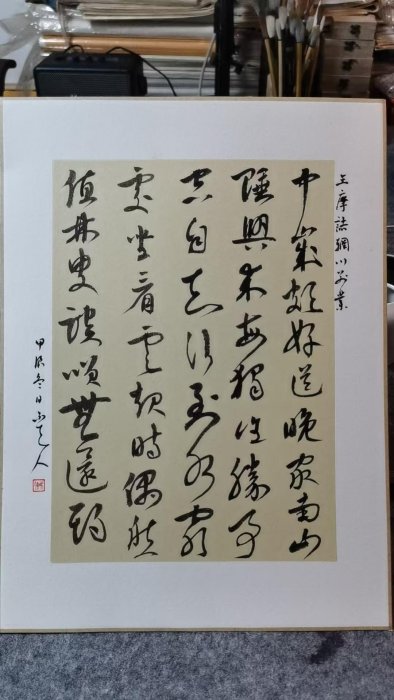 王摩詰輞川別業
中歲頗好道晚家南山
陲興來每獨往勝事
空自知行到水窮
處坐看雲起時偶然
值林叟談咲無還期
甲辰冬日